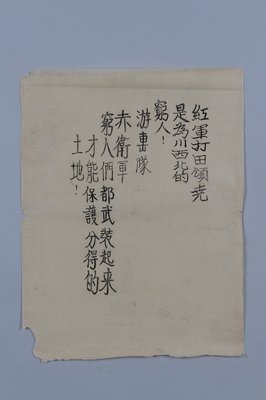 紅軍打田頌尧
是為川西北的
窮人！
游擊隊
赤衛軍
窮人們都武裝起来
才能保護分得的
土地！